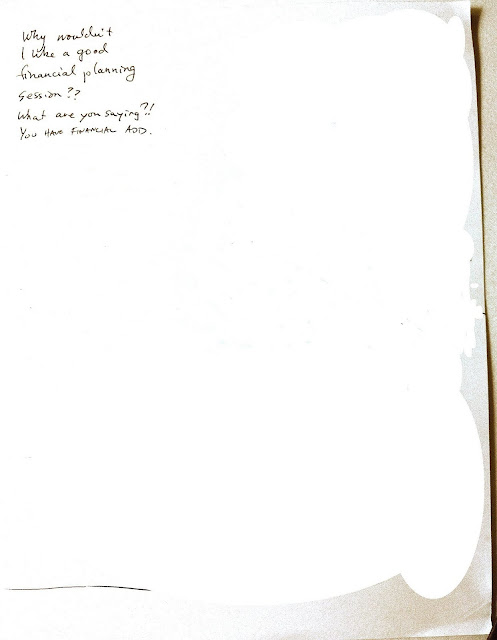 Why wouldn't
I like a good
financial planning
session??
What are you saying?!!
YOU HAVE FINANCIAL ADD.